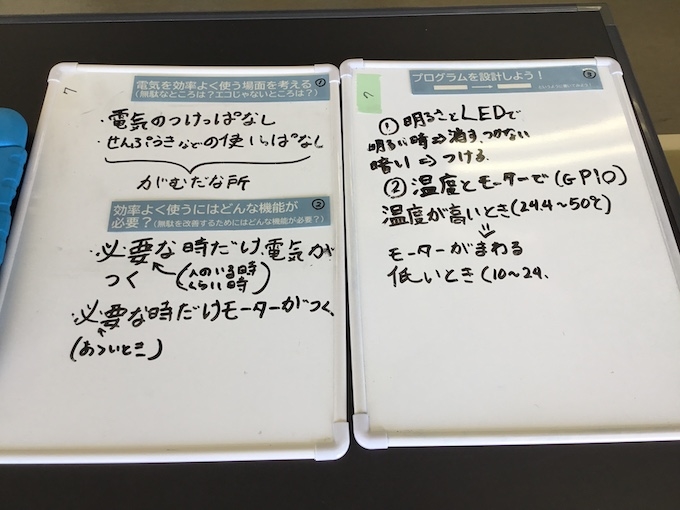 7
電気を効率よく使う場面を考える ①
(無駄なところは?エコじゃないところは?)
・電気のつけっぱなし
・せんぷうきなどの使いっぱなし
がむだな所
効率よく使うにはどんな機能が ②
必要?(無駄を改善するためにはどんな機能が必要?)
・必要な時だけ、電気が
つく
(人のいる時
くらい時)
・必要な時だけモーターがつく、
(あついとき)
7
プログラムを設計しよう! ③
① 明るさとLEDで
明るい時⇒消す、つかない
暗い ⇒ つける
② 温度とモーターで(GPIO)
温度が高いとき(24.4~50℃)
⇓
モーターがまわる
低いとき(10~24.